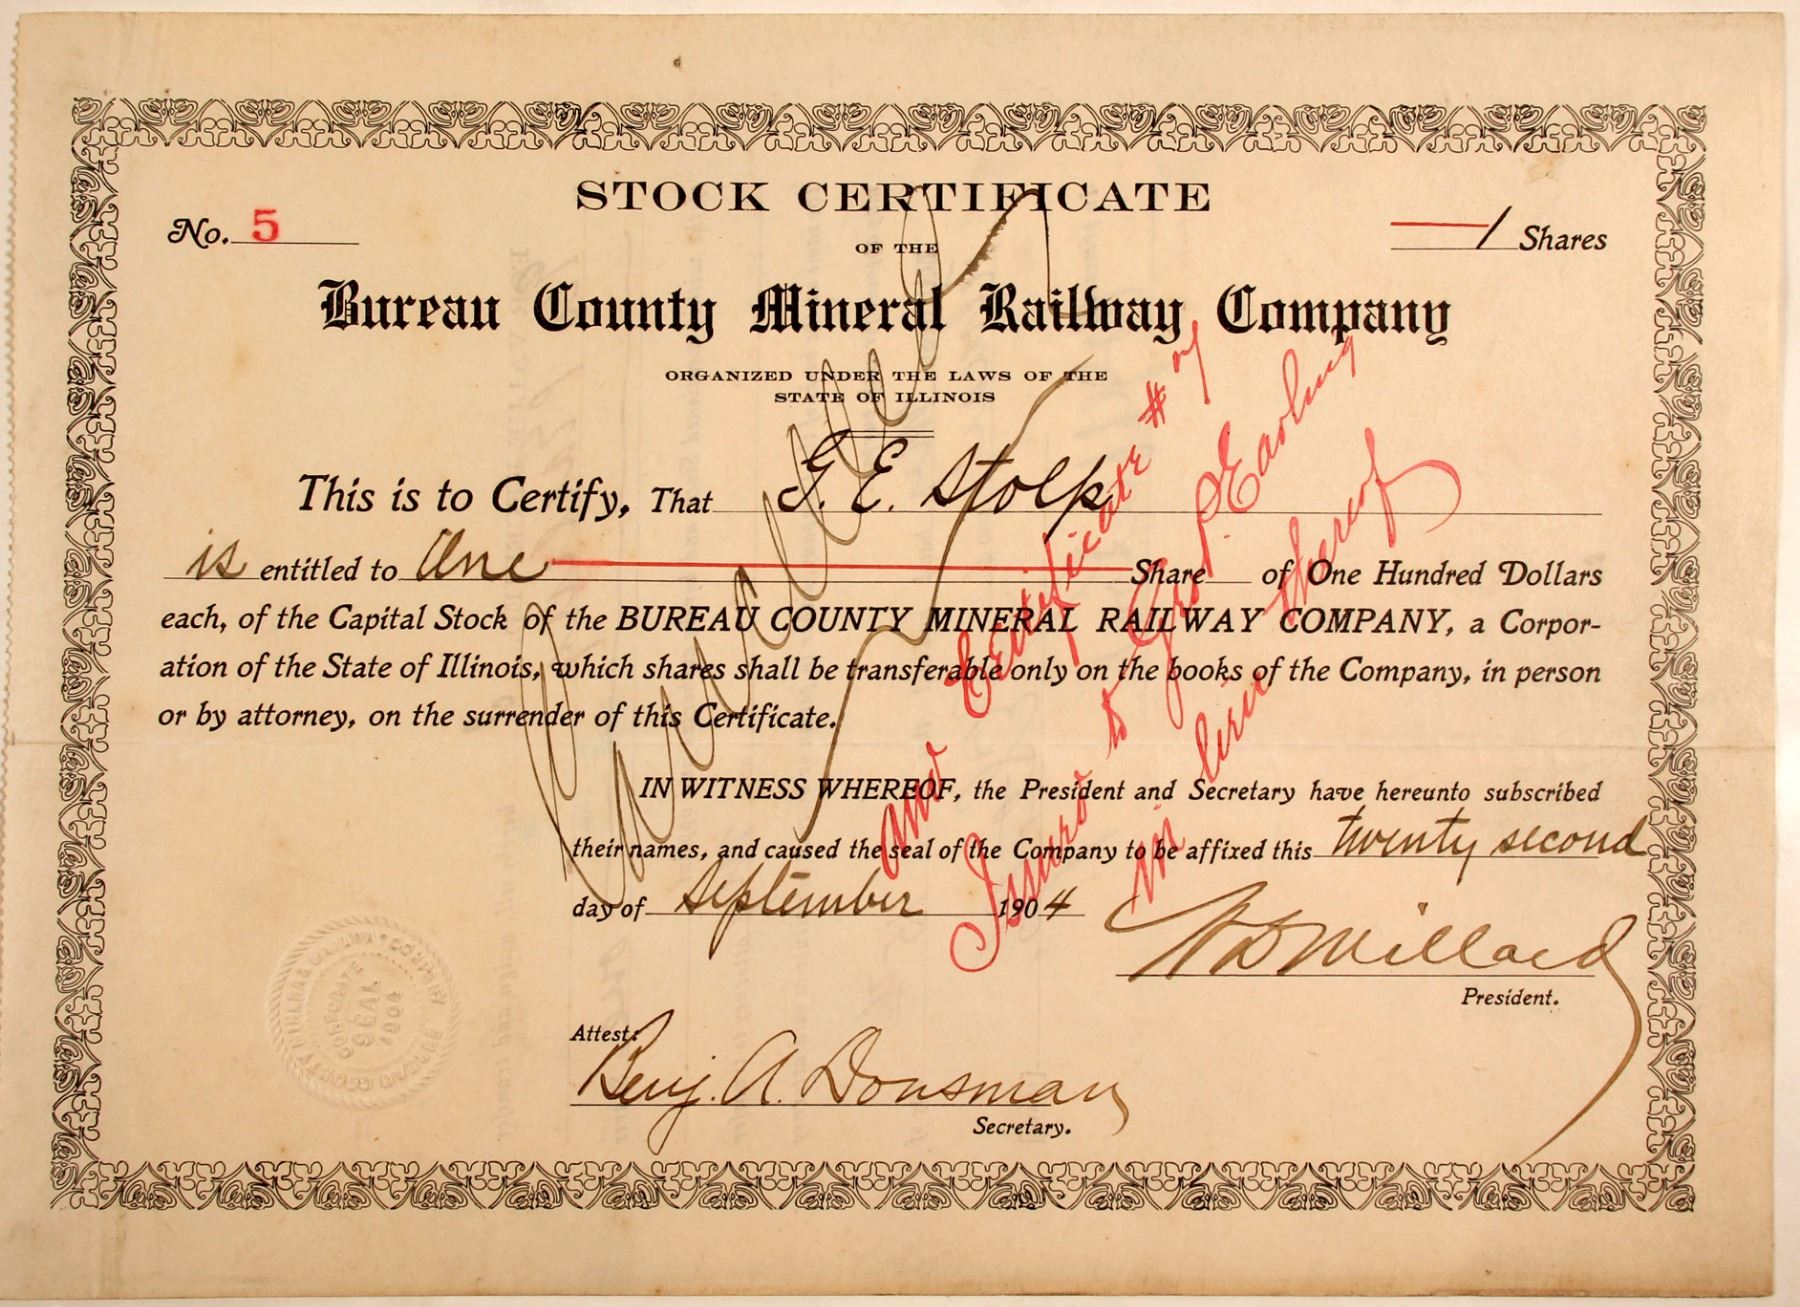 STOCK CERTIFICATE
No. 5
1 Shares
OF THE
Bureau County Mineral Railway Company
ORGANIZED UNDER THE LAWS OF THE
STATE OF ILLINOIS
This is to Certify, That G. E. Stolp
is entitled to One Share of One Hundred Dollars
each, of the Capital Stock of the BUREAU COUNTY MINERAL RAILWAY COMPANY, a Corpor-
ation of the State of Illinois, which shares shall be transferable only on the books of the Company, in person
or by attorney, on the surrender of this Certificate.
IN WITNESS WHEREOF, the President and Secretary have hereunto subscribed
their names, and caused the seal of the Company to be affixed this twenty second
day of September 1904
Millard
President.
Attest:
Benj. A. Dousman
Secretary.
Cancelled
and Certificate # 7
Issued to Geo. P. Earling
in lieu thereof
BUREAU COUNTY MINERAL RAILWAY COMPANY
CORPORATE
SEAL
1904